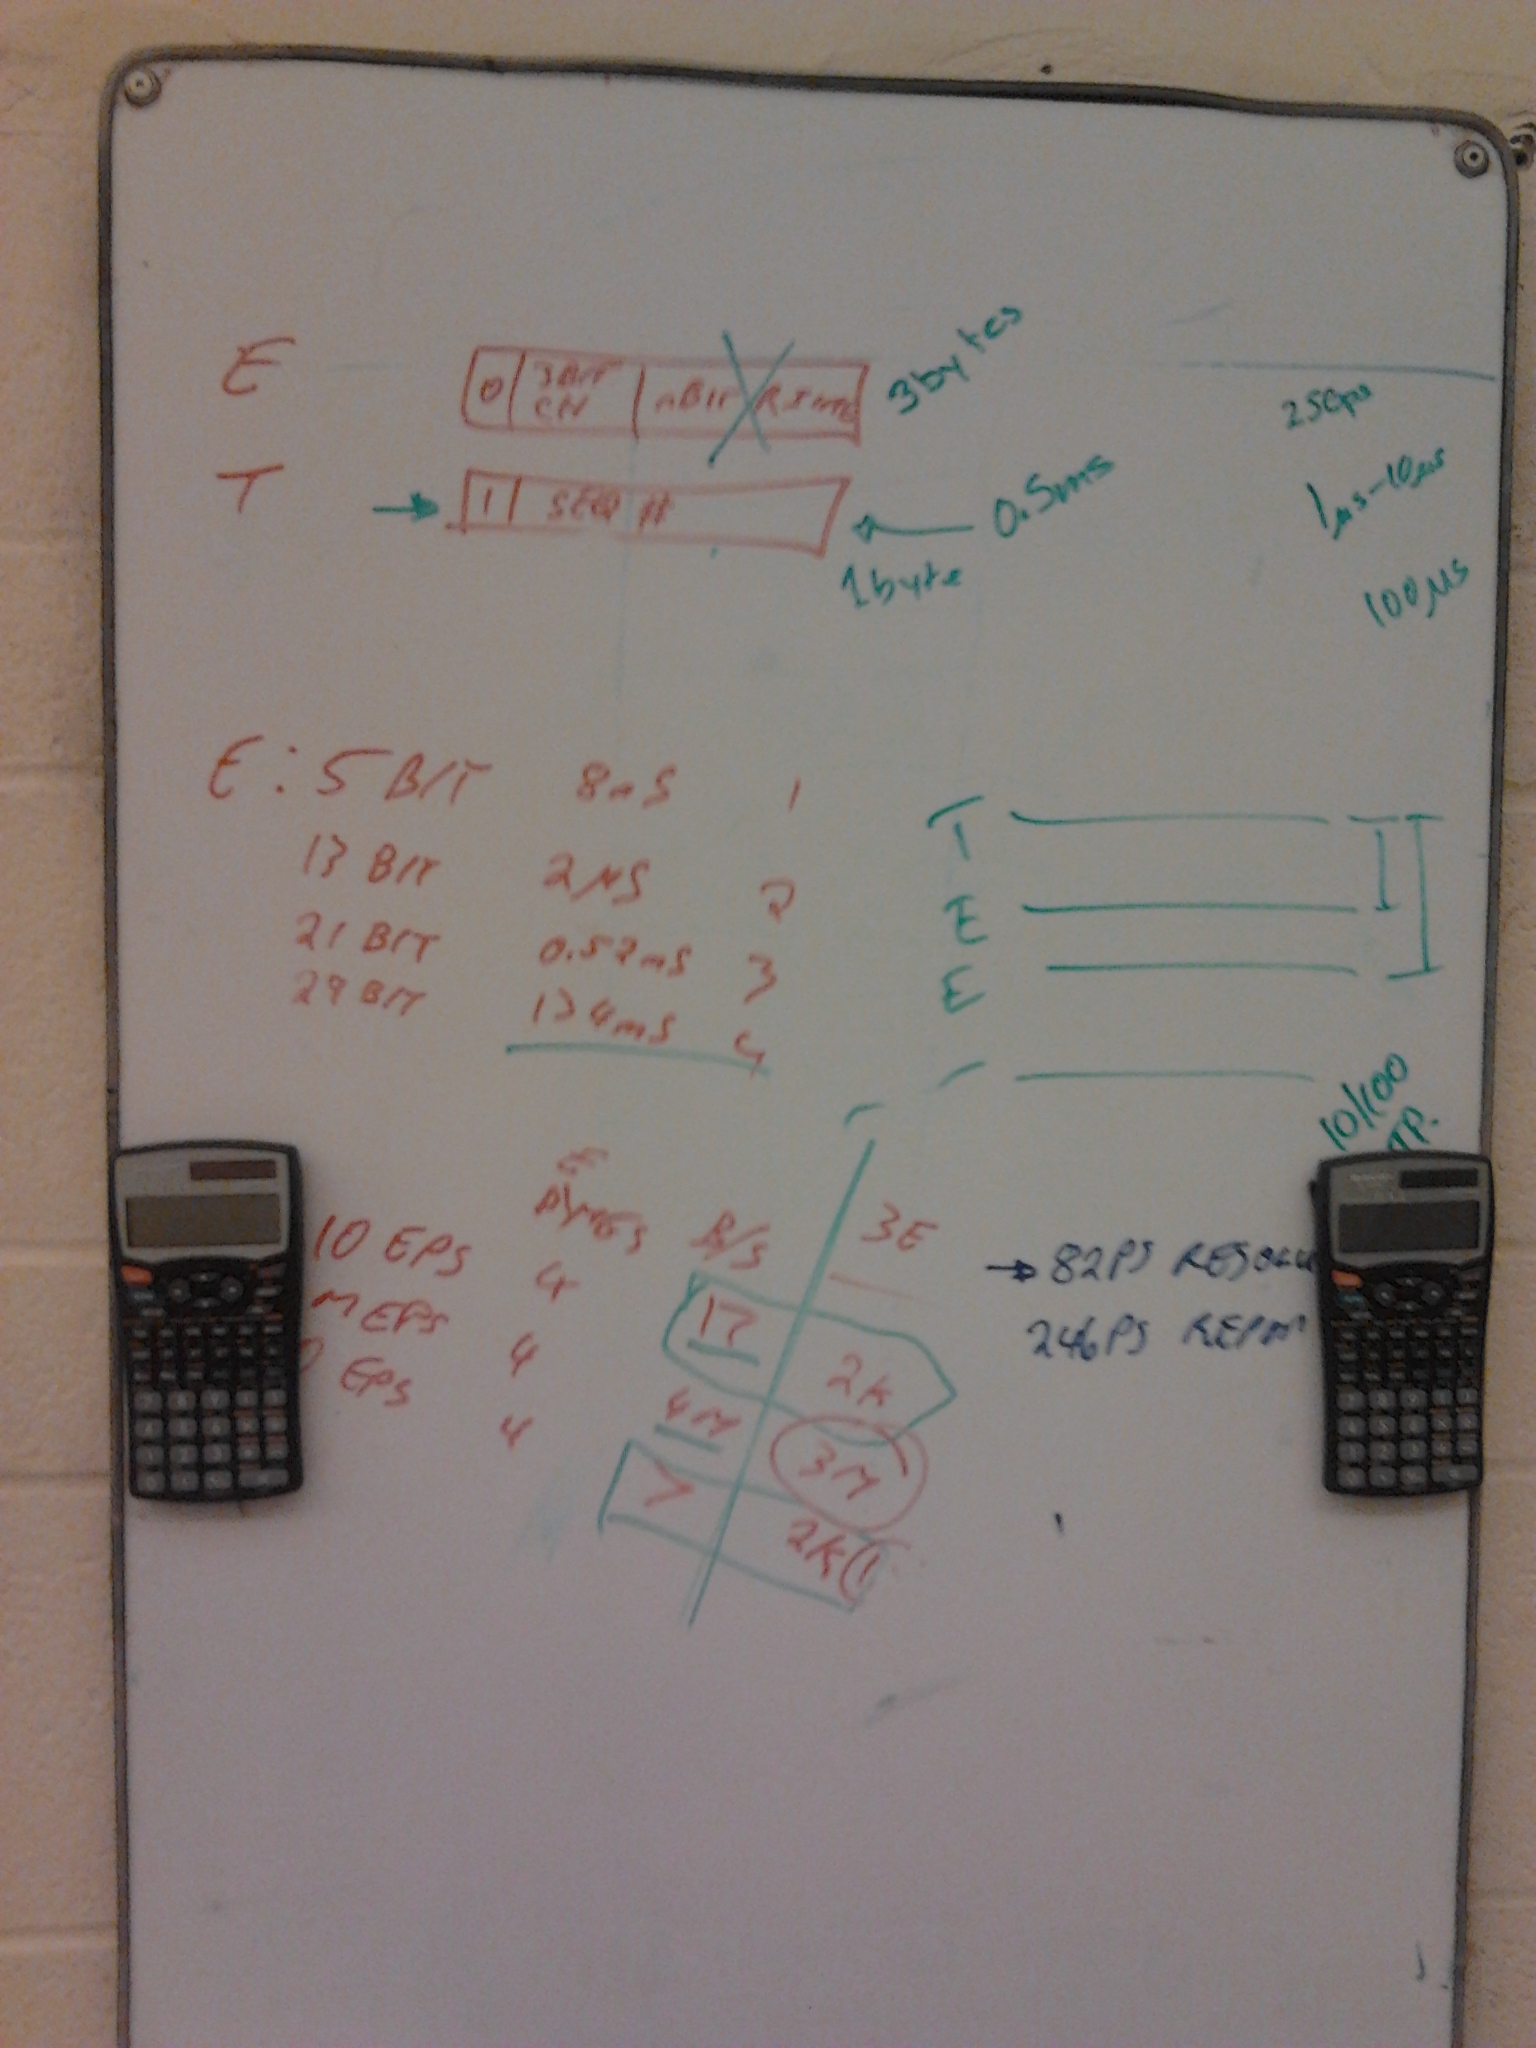 E 0 3BIT CH nBIT 3bytes
250ps
T 1 SEQ # 0.5ms
1byte
1µs-10µs
100µs
E: 5 BIT 8nS 1
13 BIT 2µS 2
21 BIT 0.52mS 3
29 BIT 134mS 4
T
E
E
10/100
BYTES B/S 3E
10 EPS 4 17 2K
M EPS 4 4M 3M
EPS 4 2K
→ 82PS
246PS